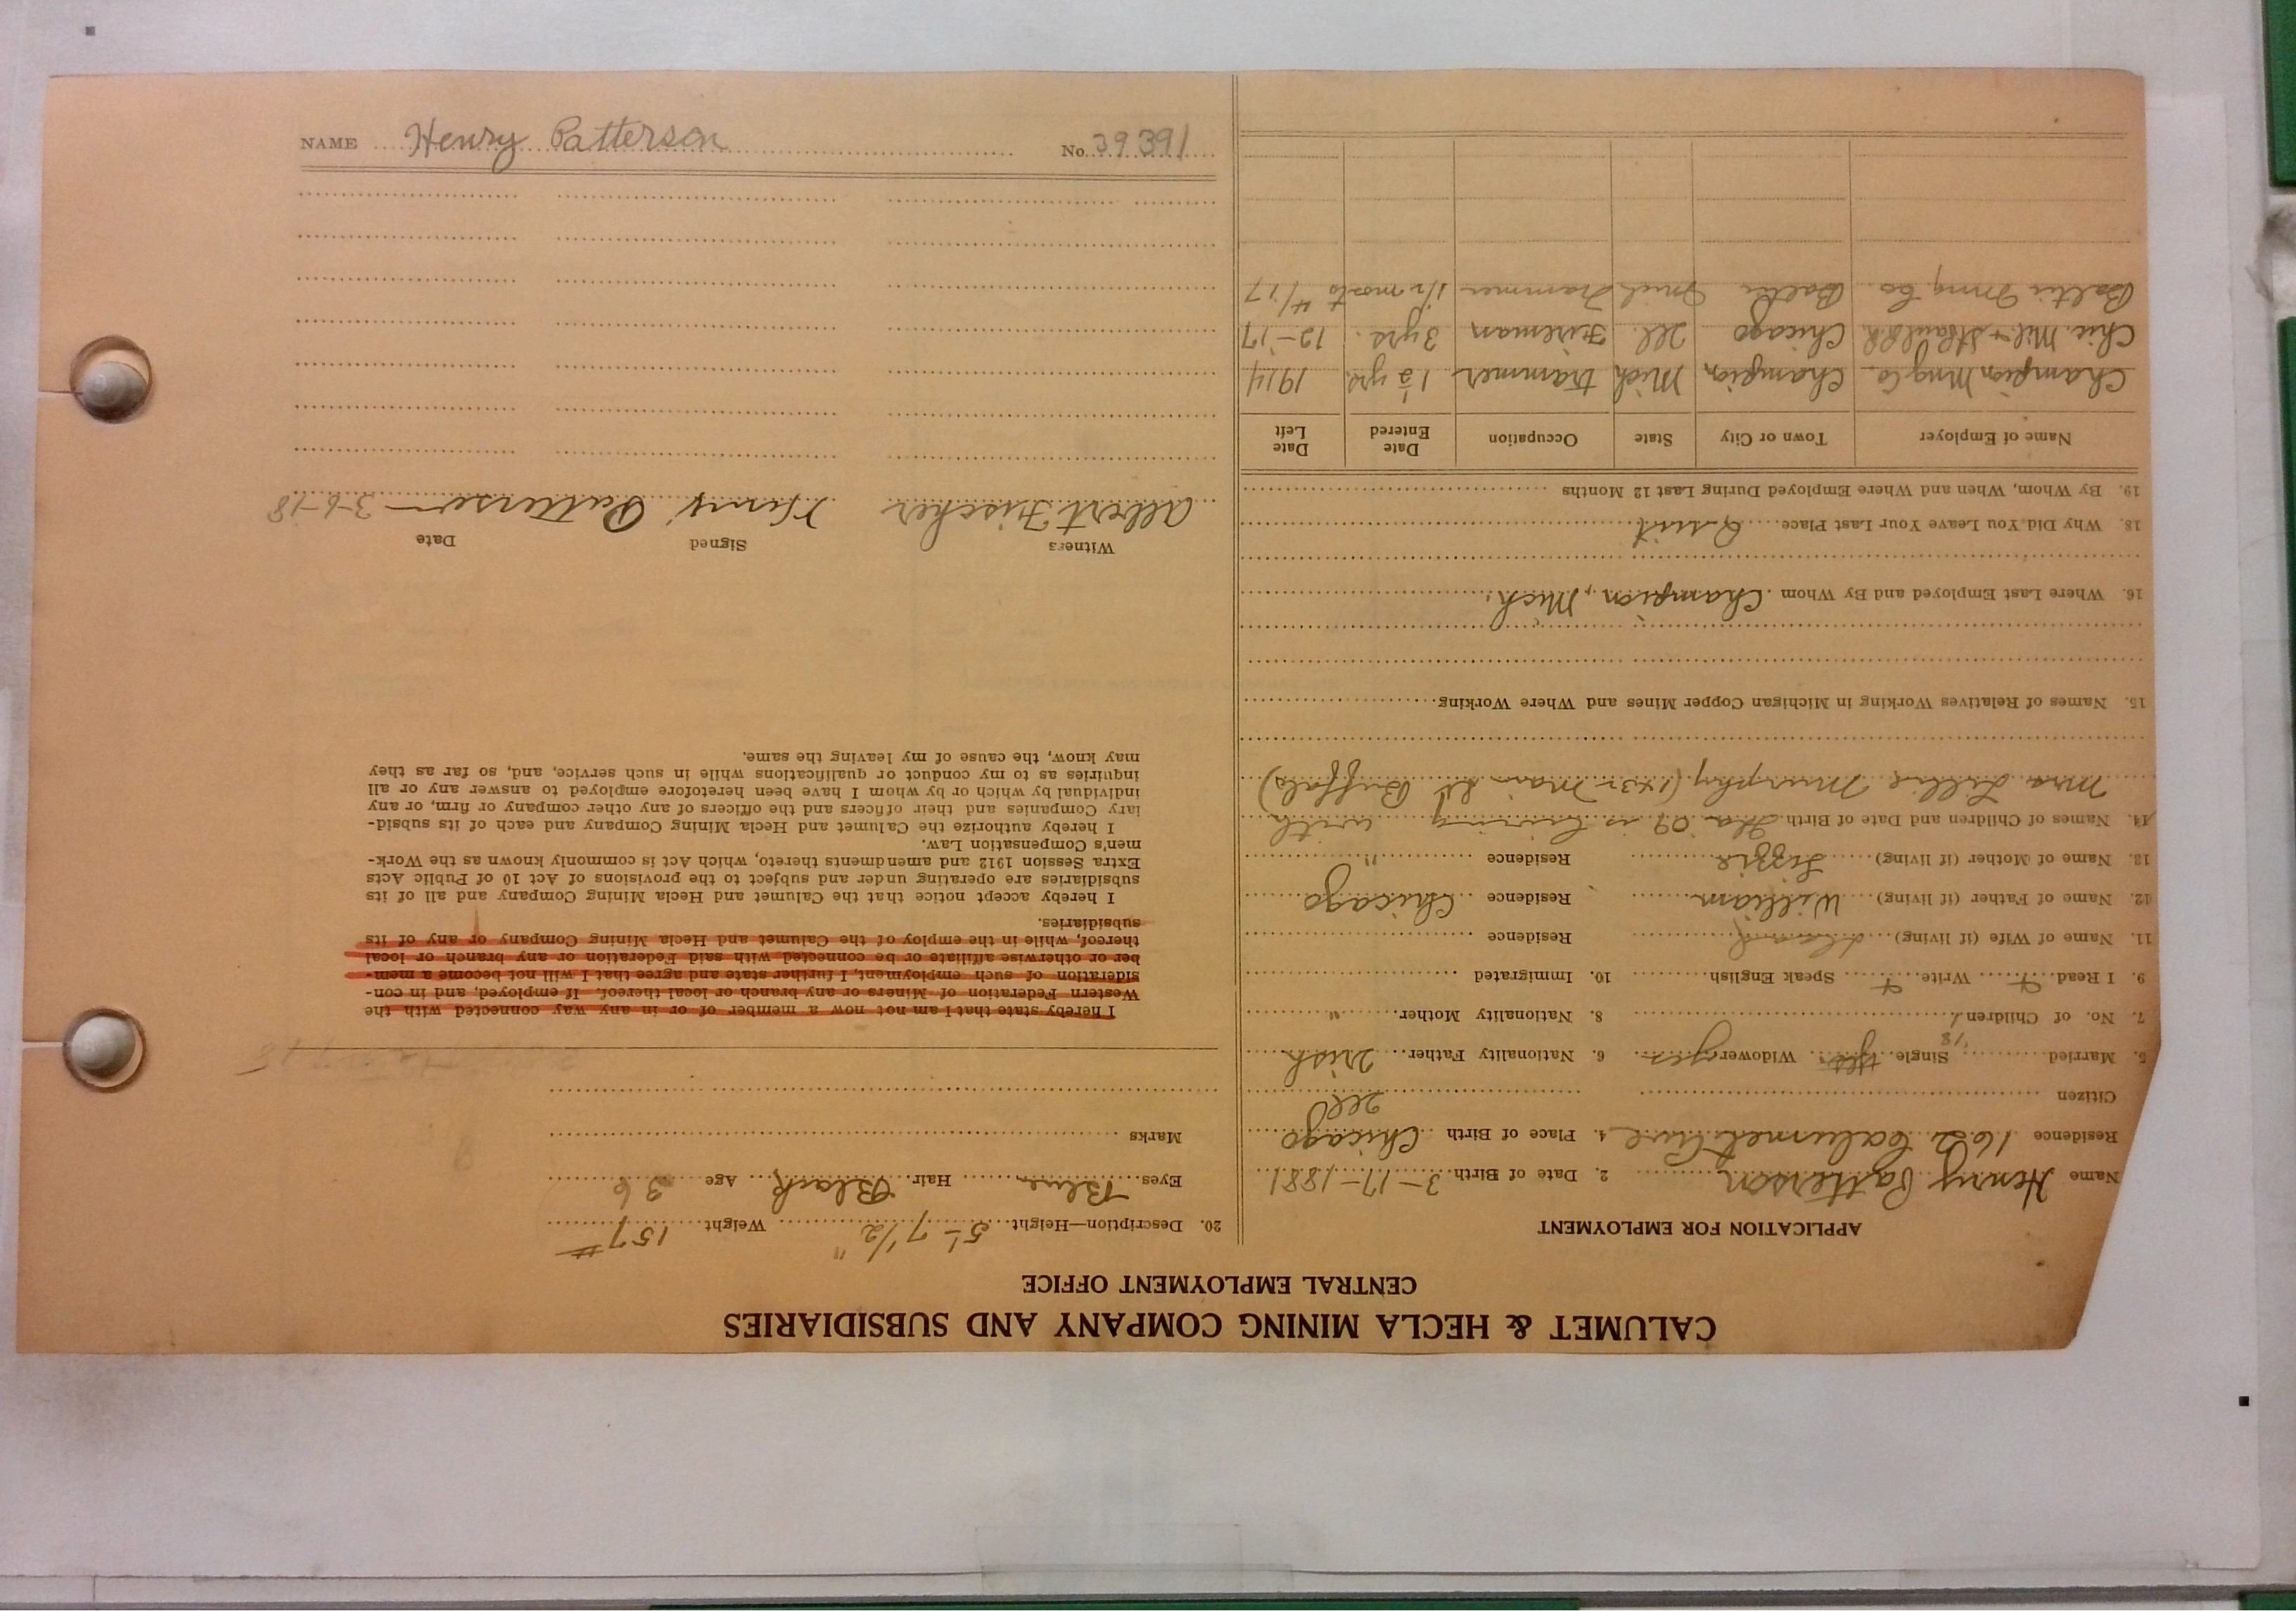 CALUMET & HECLA MINING COMPANY AND SUBSIDIARIES
CENTRAL EMPLOYMENT OFFICE
APPLICATION FOR EMPLOYMENT
Name Henry Patterson 2. Date of Birth 3-17-1881
Residence 162 Calumet Ave 4. Place of Birth Chicago
Ill
Citizen
5. Married '18 Single yes Widower yes 6. Nationality Father Irish
7. No. of Children 1 8. Nationality Mother "
9. I Read Write Speak English 10. Immigrated
11. Name of Wife (if living) Residence
12. Name of Father (if living) William Residence Chicago
13. Name of Mother (if living) Lizzie Residence "
14. Names of Children and Date of Birth '09 is living with
Mrs Lillie Murphy ( Main St Buffalo)
15. Names of Relatives Working in Michigan Copper Mines and Where Working
16. Where Last Employed and By Whom Champion, Mich.
18. Why Did You Leave Your Last Place Quit
19. By Whom, When and Where Employed During Last 12 Months
Name of Employer Town or City State Occupation Date Entered Date Left
Champion Mng Co. Champion Mich trammer 1 1/2 yrs. 1914
Chic. Mil. & St Paul RR Chicago Ill. Fireman 3 yrs. 12-17
Baltic Mng Co. Baltic Mich Trammer 1 1/2 mos to 4/17
20. Description—Height 5'-7 1/2" Weight 157#
Eyes Blue Hair Black Age 36
Marks
I hereby state that I am not now a member of or in any way connected with the
Western Federation of Miners or any branch or local thereof. If employed, and in con-
sideration of such employment, I further state and agree that I will not become a mem-
ber or otherwise affiliate or be connected with said Federation or any branch or local
thereof, while in the employ of the Calumet and Hecla Mining Company or any of its
subsidiaries.
I hereby accept notice that the Calumet and Hecla Mining Company and all of its
subsidiaries are operating under and subject to the provisions of Act 10 of Public Acts
Extra Session 1912 and amendments thereto, which Act is commonly known as the Work-
men's Compensation Law.
I hereby authorize the Calumet and Hecla Mining Company and each of its subsid-
iary Companies and their officers and the officers of any other company or firm, or any
individual by which or by whom I have been heretofore employed to answer any or all
inquiries as to my conduct or qualifications while in such service, and, so far as they
may know, the cause of my leaving the same.
Witness Signed Date
Albert Fischer Henry Patterson 3-6-18
NAME Henry Patterson No. 39391